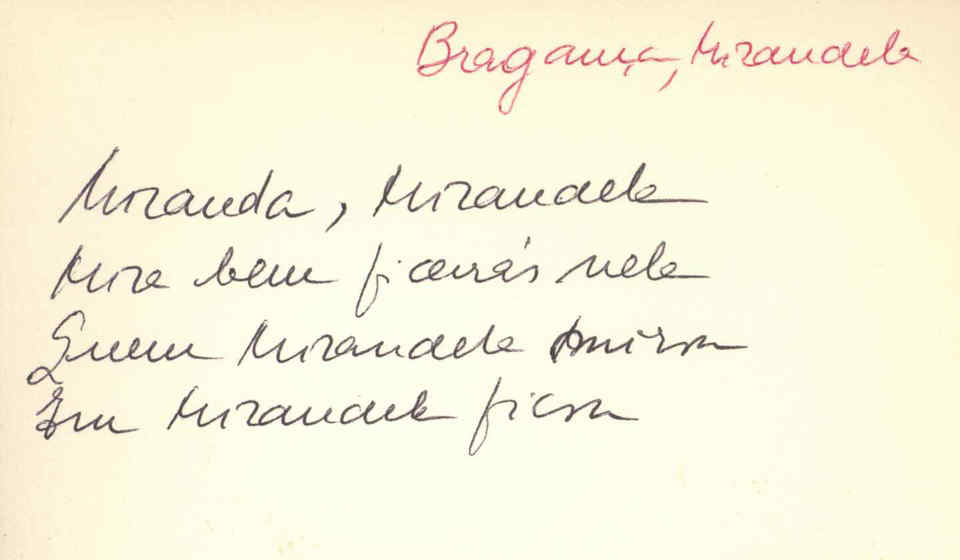 Bragança, Mirandela
Miranda, Mirandela
Mira bem ficarás nela
Quem Mirandela mirou
Em Mirandela ficou